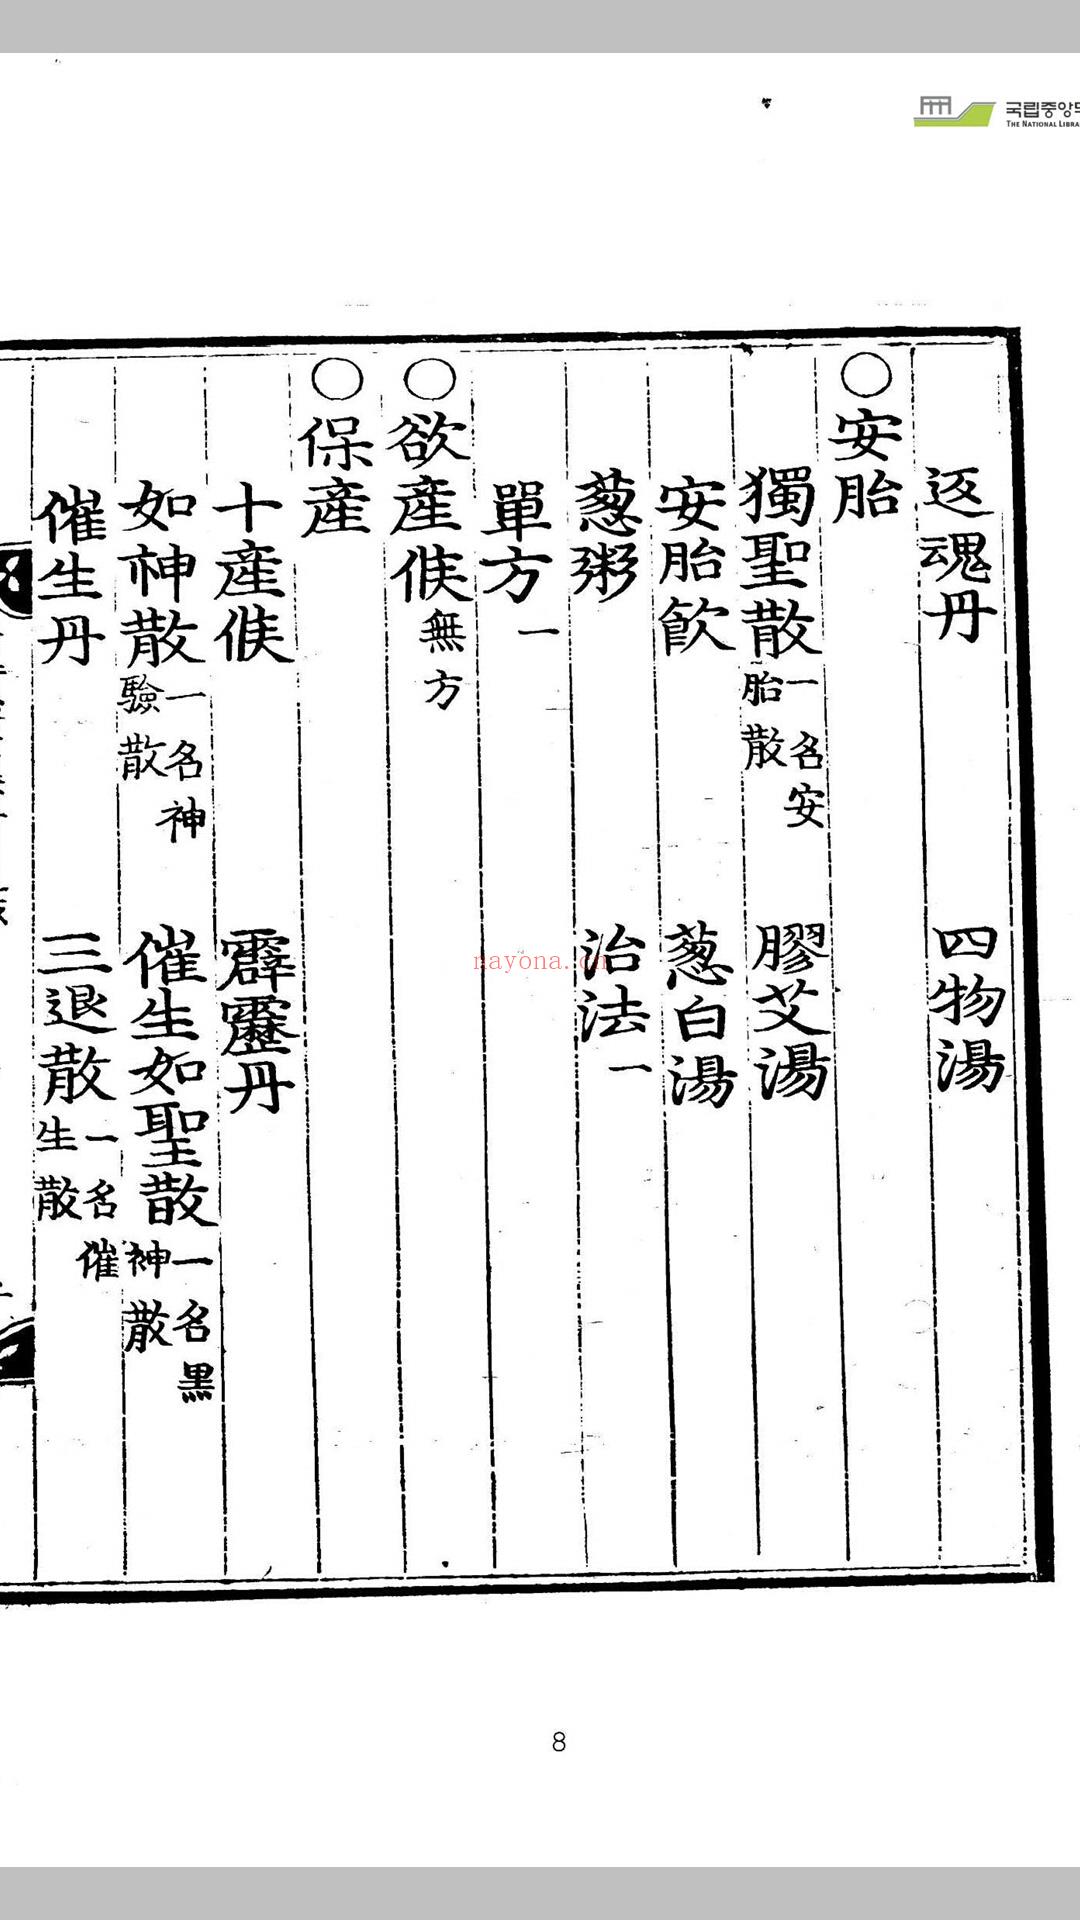 국립중앙도
THE NATIONAL LIBRA
返魂丹 四物湯
○安胎
獨聖散一名安胎散 膠艾湯
安胎飮 葱白湯
葱粥 治法一
單方一
○欲産候無方
○保産
十産候 霹靂丹
如神散一名神驗散 催生如聖散一名黑神散
催生丹 三退散一名催生散
nayona.cn
8